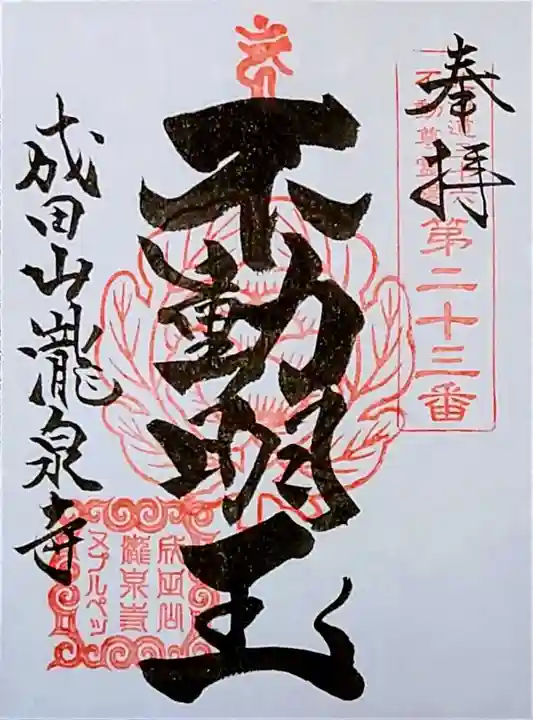 奉拝
第二十三番
不動明王
成田山瀧泉寺
成田山
瀧泉寺
ヌプルペツ